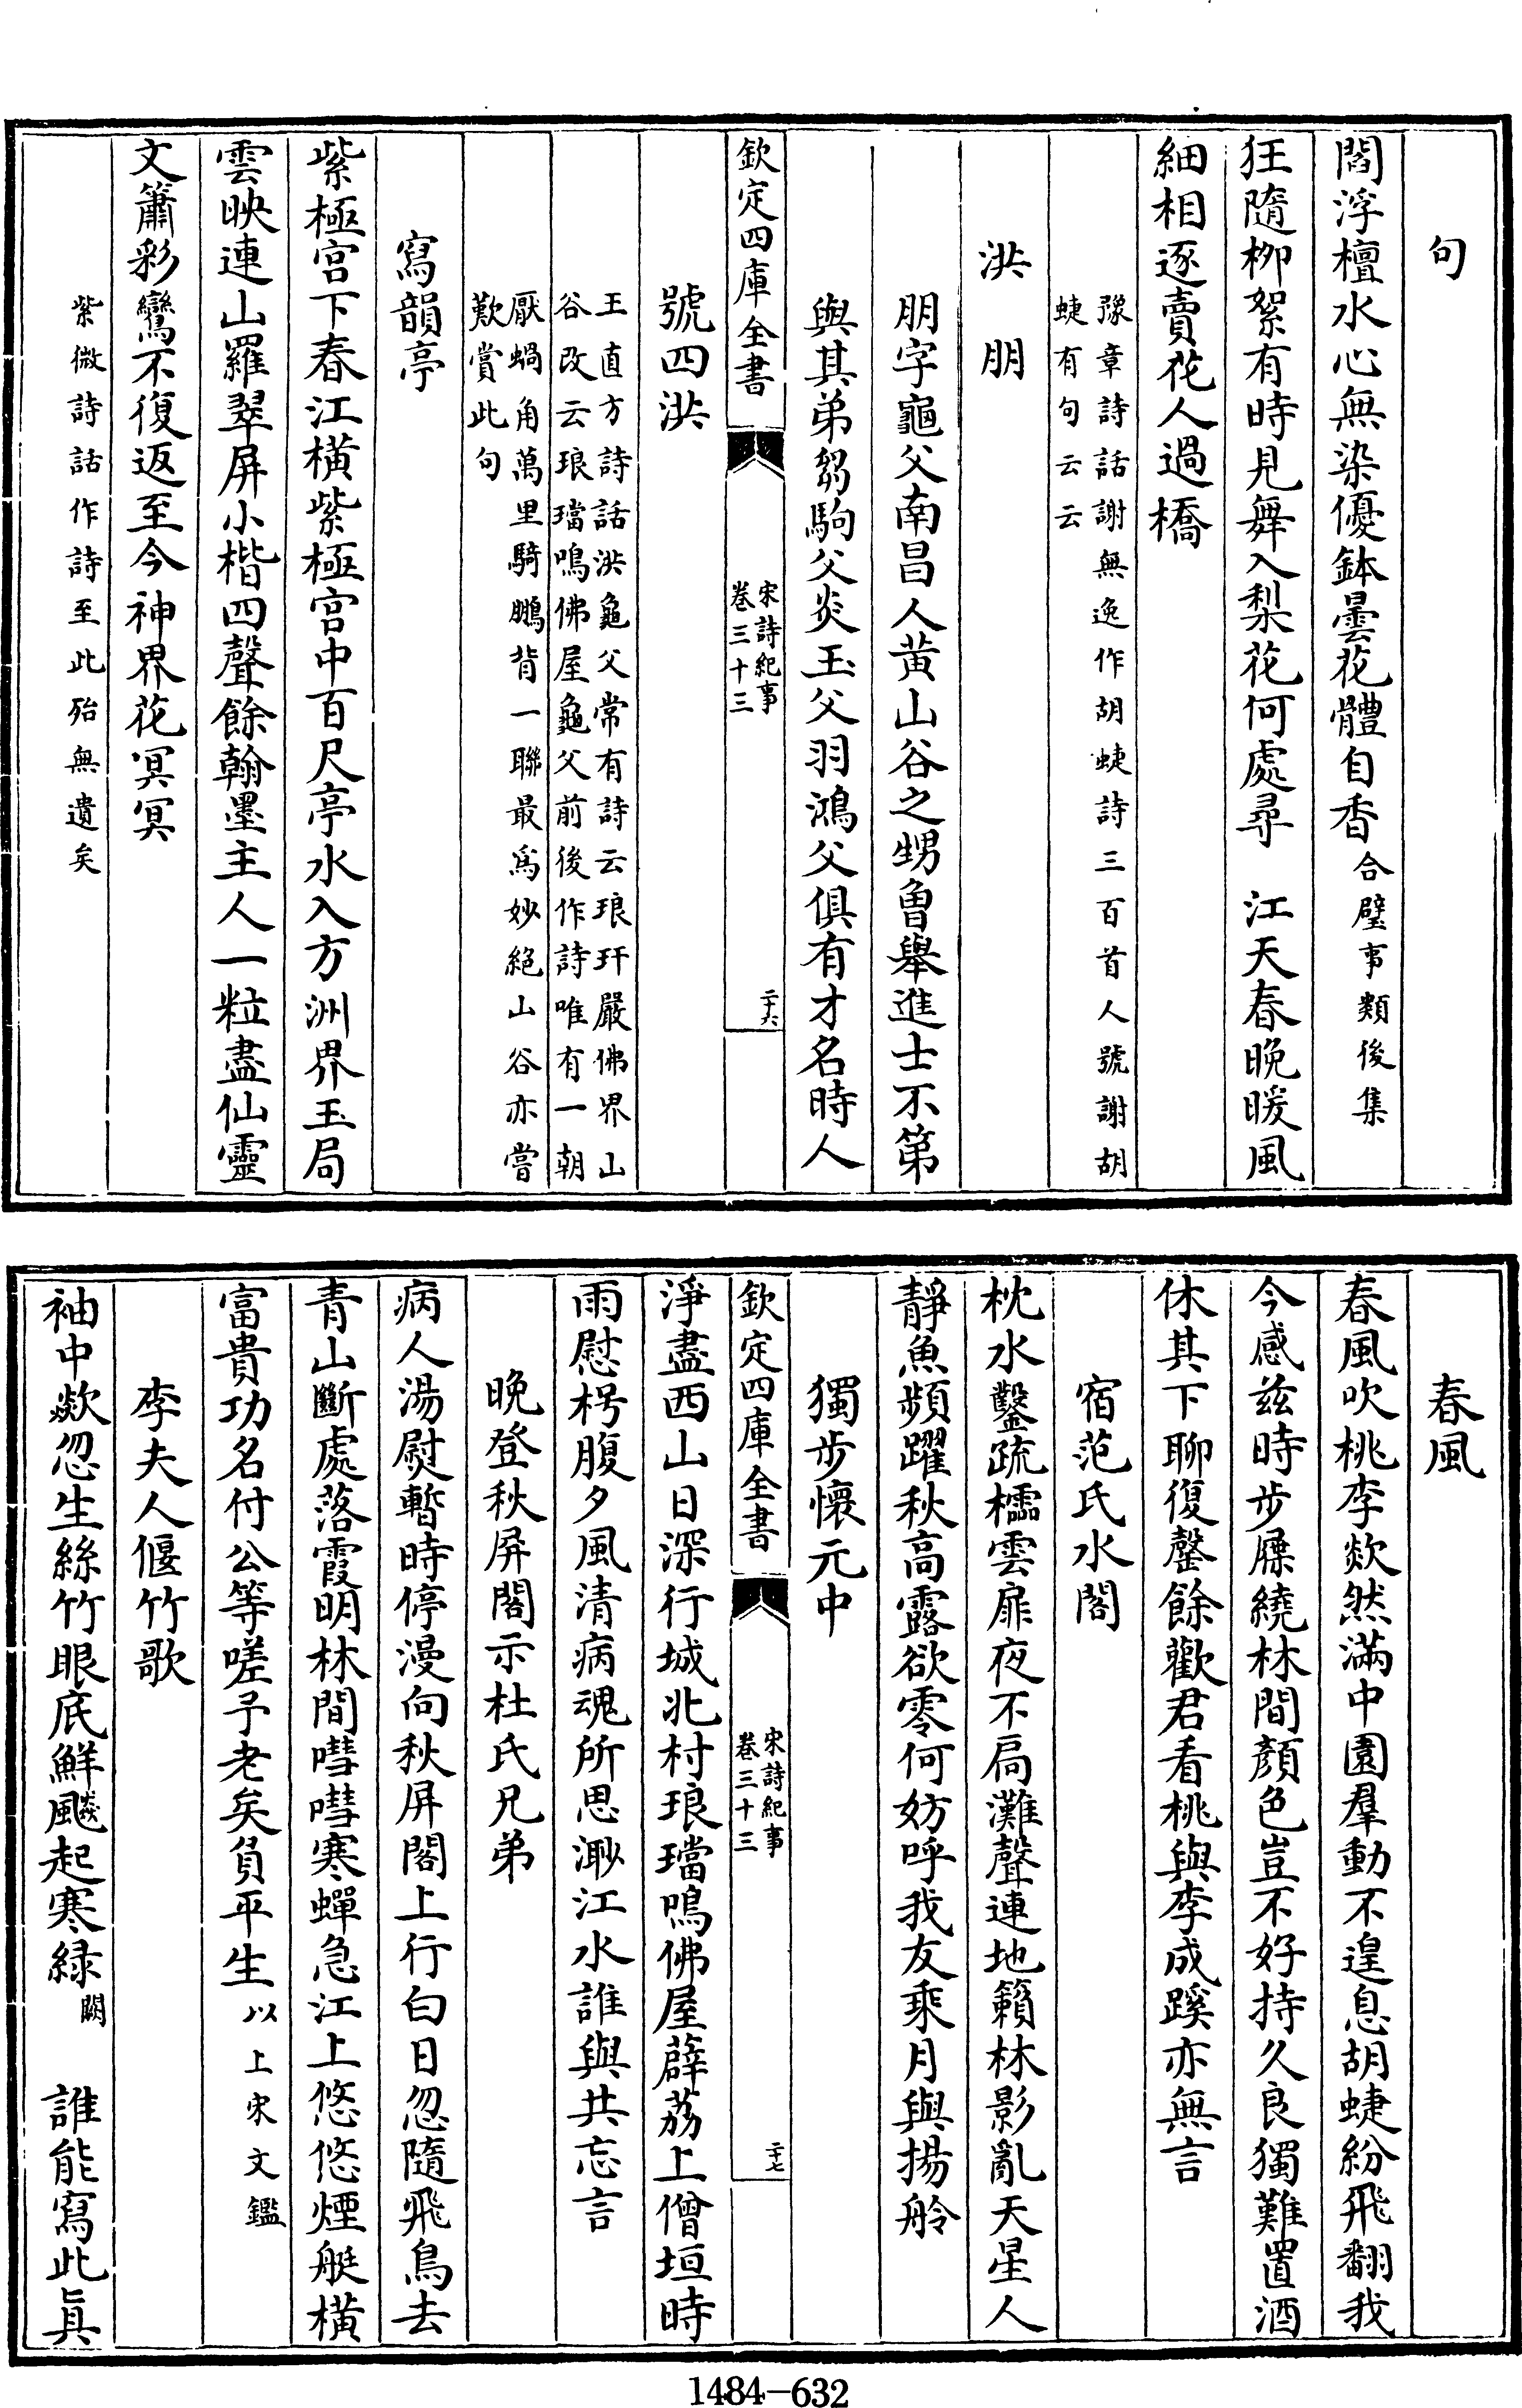 句
閻浮檀水心無染優鉢曇花體自香合璧事類後集
狂隨柳絮有時見舞入梨花何處尋　江天春晚暖風
細相逐賣花人過橋
豫章詩話謝無逸作胡蜨詩三百首人號謝胡
蜨有句云云
洪　朋
朋字龜父南昌人黃山谷之甥曾舉進士不第
與其弟芻駒父炎玉父羽鴻父俱有才名時人
欽定四庫全書
宋詩紀事
卷三十三
二十六
號四洪
王直方詩話洪龜父常有詩云琅玕嚴佛界山
谷改云琅璫鳴佛屋龜父前後作詩唯有一朝
厭蝸角萬里騎鵬背一聯最爲妙絕山谷亦嘗
歎賞此句
寫韻亭
紫極宮下春江橫紫極宮中百尺亭水入方洲界玉局
雲映連山羅翠屏小楷四聲餘翰墨主人一粒盡仙靈
文簫彩鸞不復返至今神界花冥冥
紫微詩話作詩至此殆無遺矣
春風
春風吹桃李歘然滿中園羣動不遑息胡蜨紛飛翻我
今感兹時步屧繞林間顏色豈不好持久良獨難置酒
休其下聊復罄餘歡君看桃與李成蹊亦無言
宿范氏水閣
枕水鑿疏櫺雲扉夜不扃灘聲連地籟林影亂天星人
靜魚頻躍秋高露欲零何妨呼我友乘月與揚舲
獨步懷元中
欽定四庫全書
宋詩紀事
卷三十三
二十七
淨盡西山日深行城北村琅璫鳴佛屋薜荔上僧垣時
雨慰枵腹夕風清病魂所思渺江水誰與共忘言
晚登秋屏閣示杜氏兄弟
病人湯熨暫時停漫向秋屏閣上行白日忽隨飛鳥去
青山斷處落霞明林間嘒嘒寒蟬急江上悠悠煙艇橫
富貴功名付公等嗟予老矣負平生以上宋文鑑
李夫人偃竹歌
袖中歘忽生絲竹眼底鮮飈起寒緑闕　誰能寫此眞
1484-632